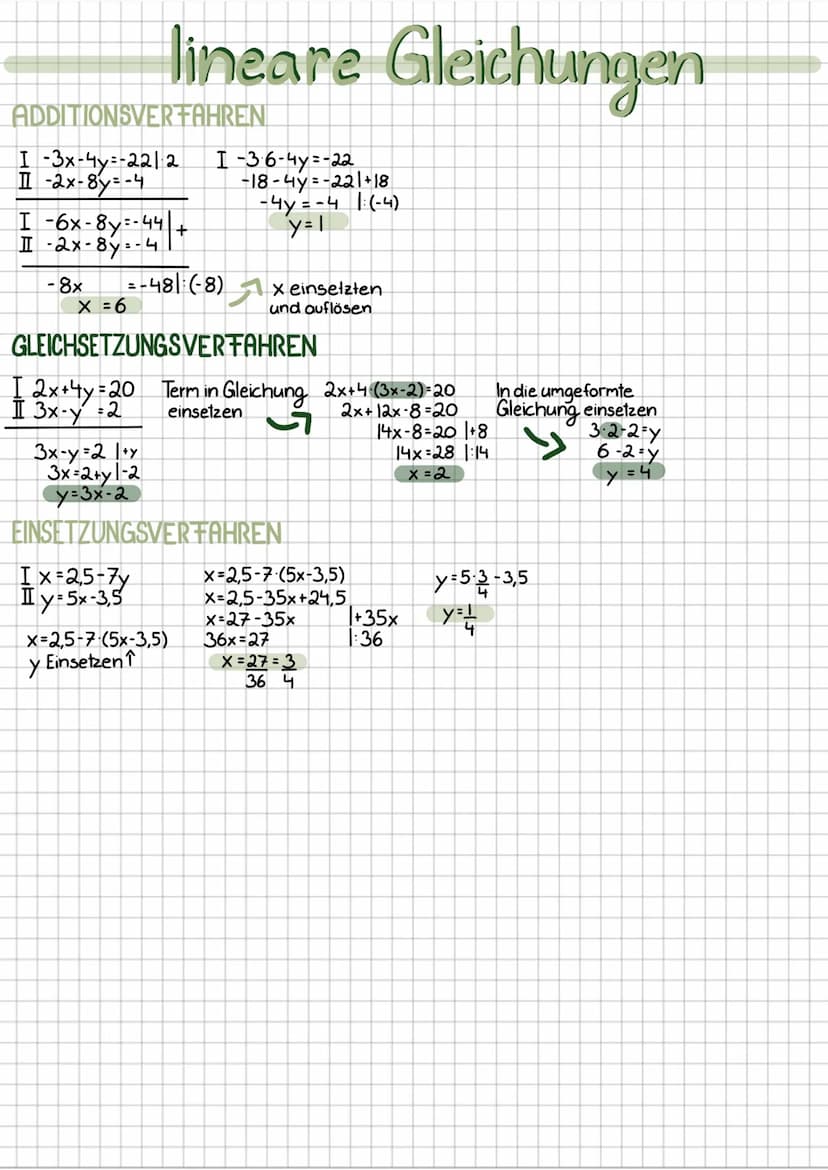 lineare Gleichungen
ADDITIONSVERFAHREN
I -3x-4y=-22|·2
II -2x-8y=-4
I -6x-8y=-44|+
II -2x-8y=-4
-8x =-48|:(-8)
x=6
I -3·6-4y=-22
-18-4y=-22|+18
-4y=-4 |:(-4)
y=1
x einselzten
und auflösen
GLEICHSETZUNGSVERFAHREN
I 2x+4y=20
II 3x-y=2
3x-y=2 |+y
3x=2+y|-2
y=3x-2
Term in Gleichung
einsetzen
2x+4·(3x-2)=20
2x+12x-8=20
14x-8=20 |+8
14x=28 |:14
x=2
In die umgeformte
Gleichung einsetzen
3·2-2=y
6-2=y
y=4
EINSETZUNGSVERFAHREN
I x=2,5-7y
II y=5x-3,5
x=2,5-7·(5x-3,5)
y Einsetzen↑
x=2,5-7·(5x-3,5)
x=2,5-35x+24,5
x=27-35x |+35x
36x=27 |:36
x=27/36=3/4
y=5·3/4-3,5
y=1/4